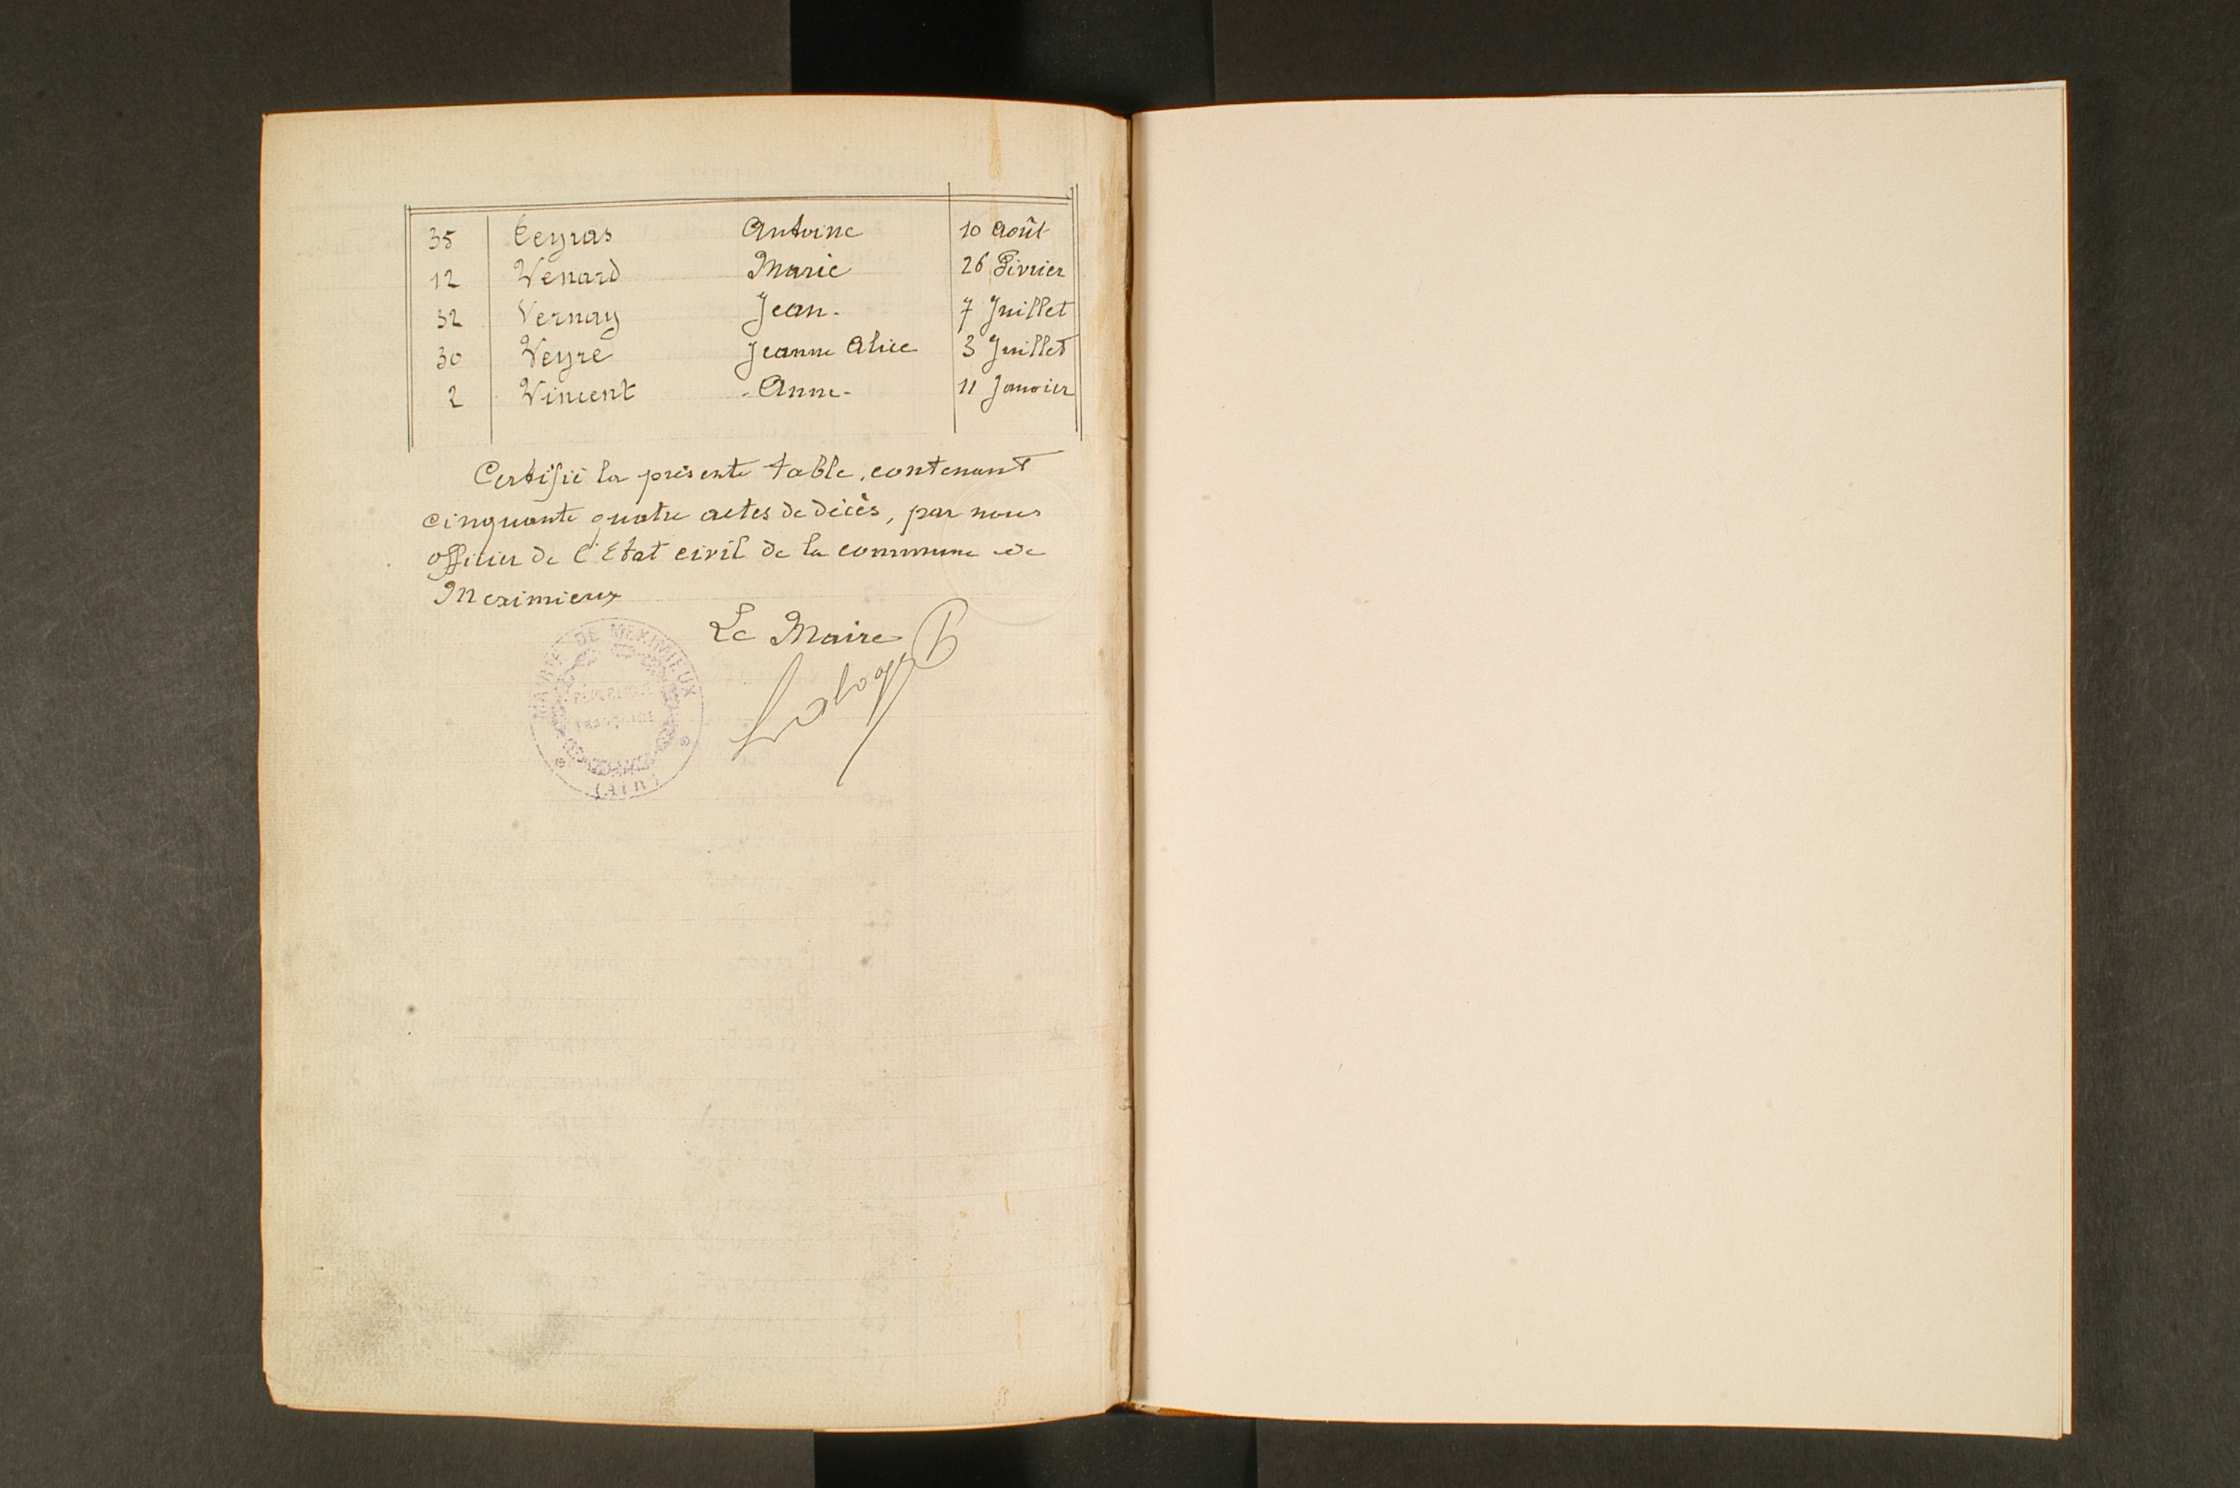 35 Teyras Antoine 10 Août
12 Venard Marie 26 Février
32 Vernay Jean. 7 Juillet
30 Veyre Jeanne Alice 3 Juillet
2 Vincent Anne 11 Janvier
Certifié la présente table, contenant
cinquante quatre actes de décès, par nous
officier de l'Etat civil de la commune de
Meximieux
Le Maire
MAIRIE DE MEXIMIEUX
RÉPUBLIQUE
FRANÇAISE
(AIN)